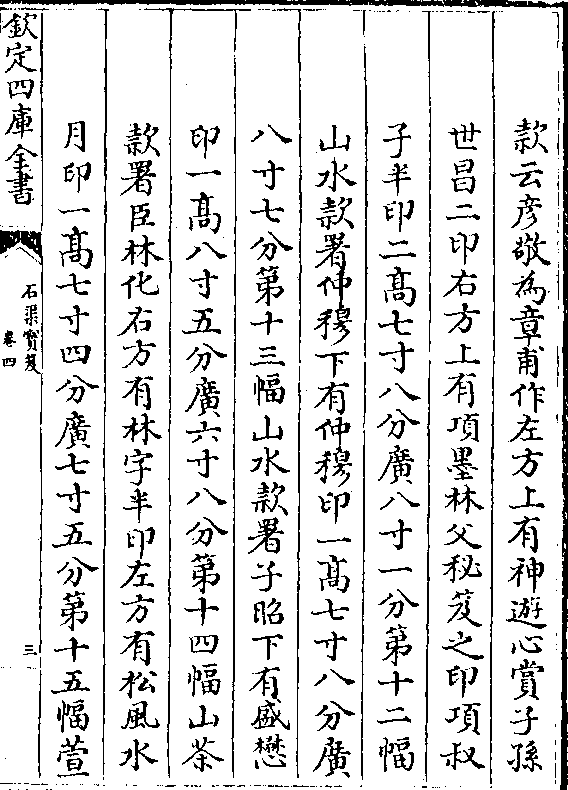 款云彥敬為章甫作左方上有神遊心賞子孫
世昌二印右方上有項墨林父秘笈之印項叔
子半印二髙七寸八分廣八寸一分第十二幅
山水款署仲穆下有仲穆印一髙七寸八分廣
八寸七分第十三幅山水款署子昭下有盛懋
印一髙八寸五分廣六寸八分第十四幅山茶
款署臣林化右方有林字半印左方有松風水
月印一髙七寸四分廣七寸五分第十五幅萱
欽定四庫全書
石渠寶笈
卷四
三